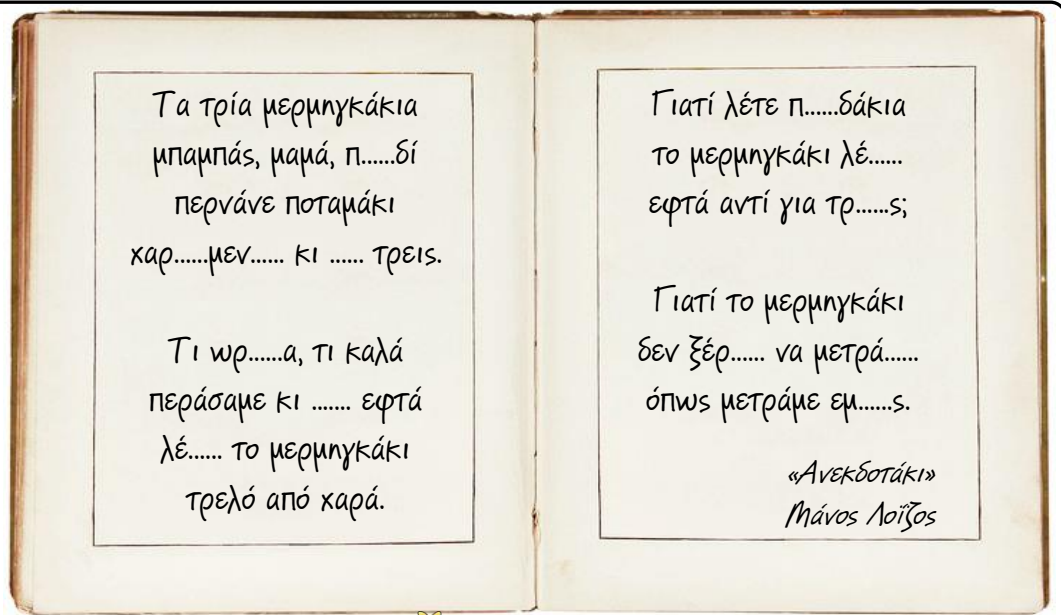 Τα τρία μερμηγκάκια
μπαμπάς, μαμά, π......δί
περνάνε ποταμάκι
χαρ......μεν...... κι ...... τρεις.
Τι ωρ......α, τι καλά
περάσαμε κι ....... εφτά
λέ...... το μερμηγκάκι
τρελό από χαρά.
Γιατί λέτε π......δάκια
το μερμηγκάκι λέ......
εφτά αντί για τρ......ς;
Γιατί το μερμηγκάκι
δεν ξέρ...... να μετρά......
όπως μετράμε εμ......ς.
«Ανεκδοτάκι»
Μάνος Λοΐζος